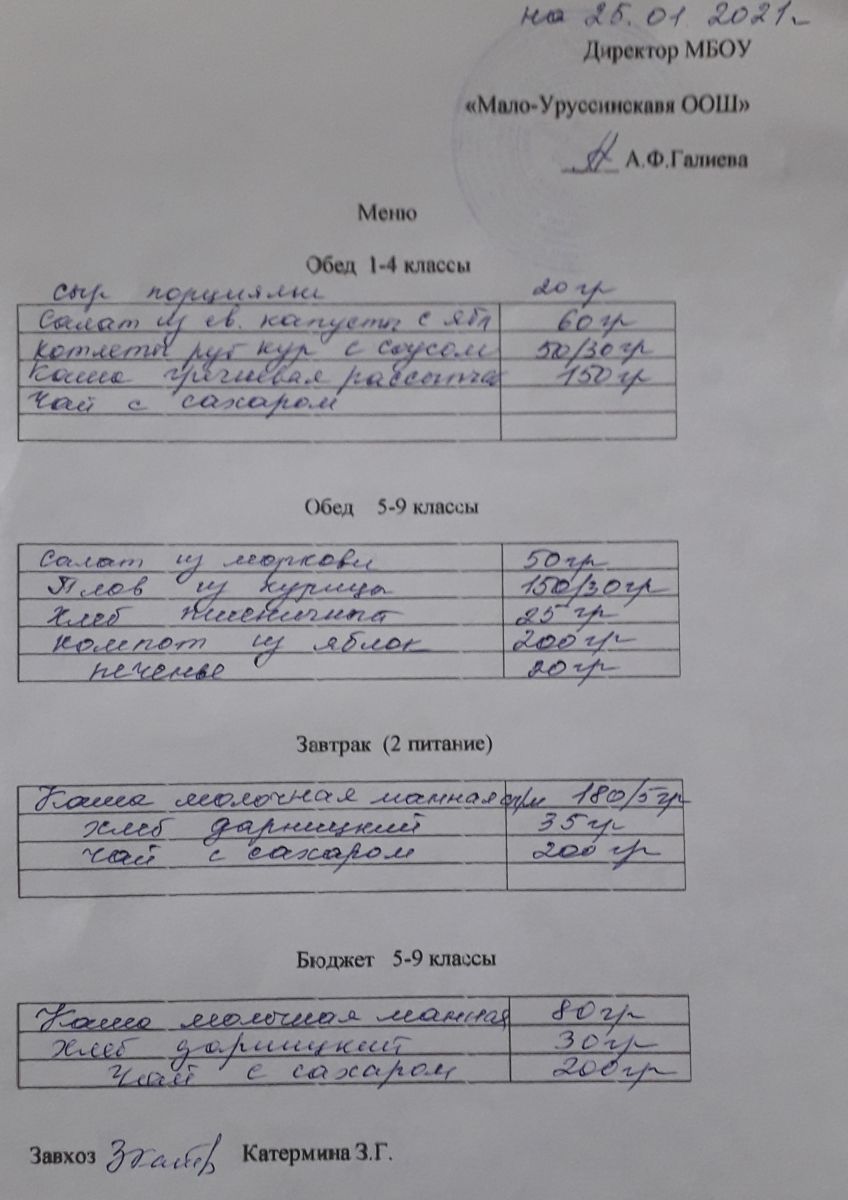 на 25.01 2021г
Директор МБОУ
«Мало-Уруссинскавя ООШ»
А.Ф.Галиева
Меню
Обед 1-4 классы
сыр порциями 20 гр
Салат из св. капусты с ябл 60 гр
котлеты руб кур с соусом 50/30 гр
Каша гречневая рассыпча 150 гр
Чай с сахаром
Обед 5-9 классы
Салат из моркови 50 гр
Плов из курицы 150/30 гр
Хлеб пшеничный 25 гр
компот из яблок 200 гр
печенье 20 гр
Завтрак (2 питание)
Каша молочная манная 180/5 гр
хлеб дарницкий 35 гр
чай с сахаром 200 гр
Бюджет 5-9 классы
Каша молочная манная 80 гр
Хлеб дарницкий 30 гр
Чай с сахаром 200 гр
Завхоз Катермина З.Г.